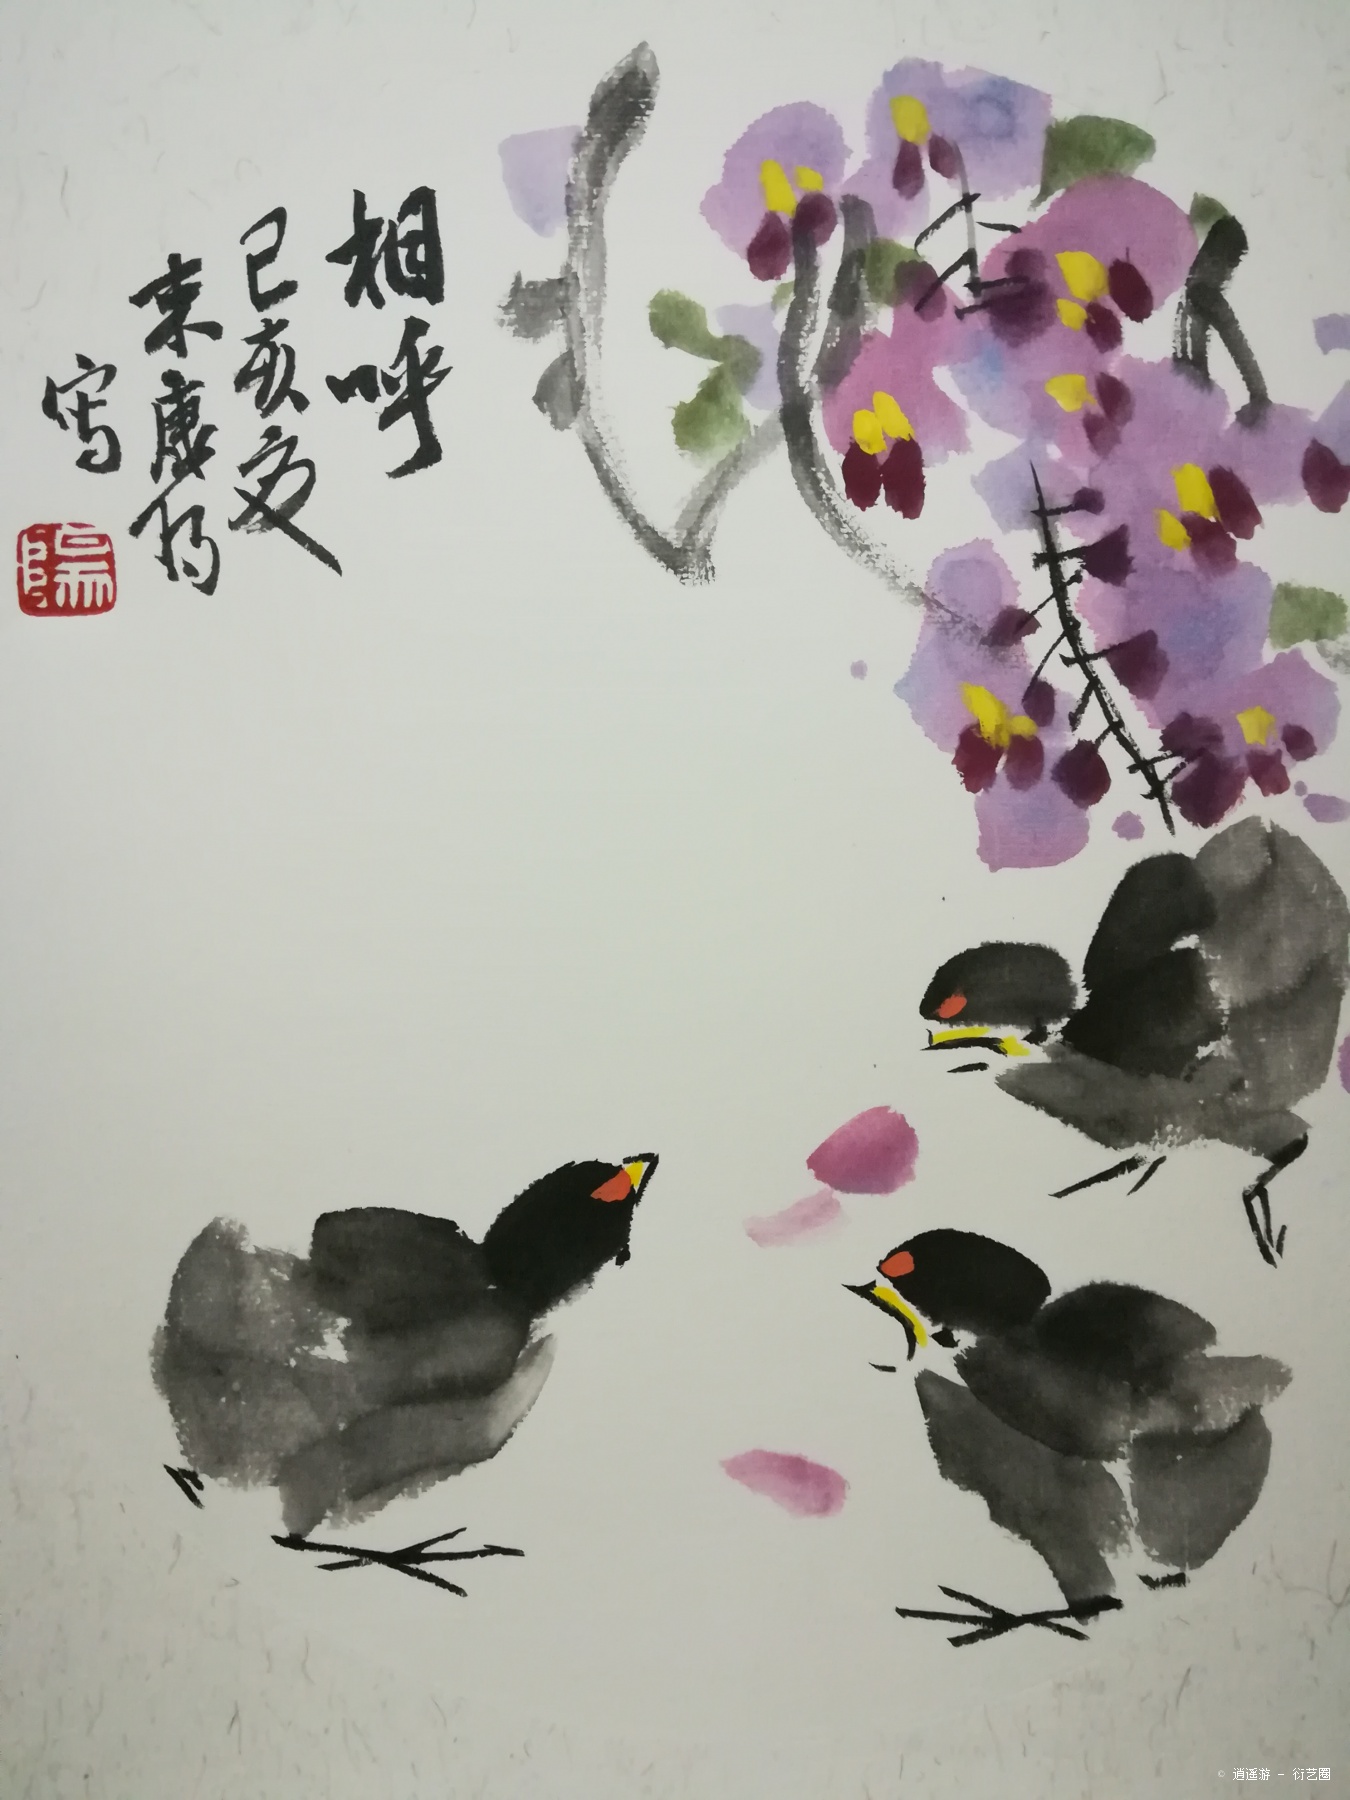 相呼
己亥夏
来康行
写
© 逍遥游 - 衍艺圈